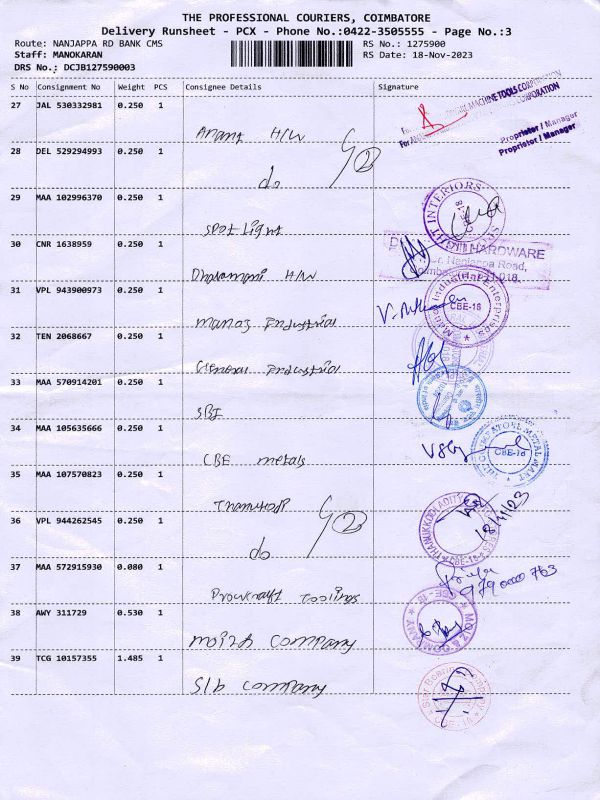 THE PROFESSIONAL COURIERS, COIMBATORE
Delivery Runsheet - PCX - Phone No.:0422-3505555 - Page No.:3
Route: NANJAPPA RD BANK CMS
RS No.: 1275900
Staff: MANOKARAN
RS Date: 18-Nov-2023
DRS No.: DCJB127590003
S No Consignment No Weight PCS Consignee Details Signature
27 JAL 530332981 0.250 1
MACHINE TOOLS CORPORATION
CORPORATION
Proprietor / Manager
Proprietor / Manager
Anant H/W
28 DEL 529294993 0.250 1
2
do
29 MAA 102996370 0.250 1
INTERIORS
Spot Light
30 CNR 1638959 0.250 1
HARDWARE
Nanjappa Road,
Dharamani H/W
31 VPL 943900973 0.250 1
Industrial Enterprises
CBE-18
Manoj Industrial
32 TEN 2068667 0.250 1
General Industrial
33 MAA 570914201 0.250 1
SBI
34 MAA 105635666 0.250 1
COIMBATORE METAL MART
CBE-18
CBE metals
35 MAA 107570823 0.250 1
18/11/23
36 VPL 944262545 0.250 1
2
do
37 MAA 572915930 0.080 1
38 AWY 311729 0.530 1
MOIZ & COMPANY
CBE-18
moiz company
39 TCG 10157355 1.485 1
S/b company